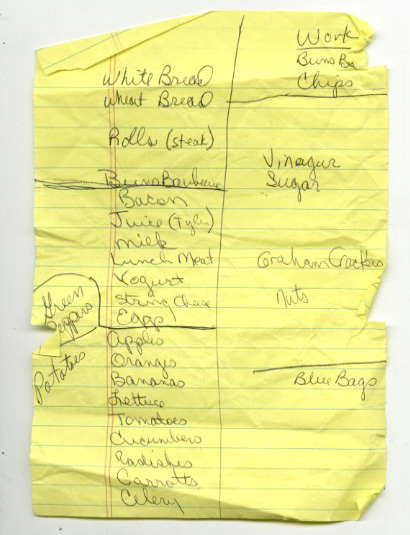 White Bread
Wheat Bread
Rolls (steak)
Buns Barbecue
Bacon
Juice (Tyler)
milk
Lunch Meat
Yogurt
String Cheese
Eggs
Green
Peppers
Potatoes
Apples
Oranges
Bananas
Lettuce
Tomatoes
Cucumbers
Radishes
Carrotts
Celery
Work
Buns
Chips
Vinagur
Sugar
Graham Crackers
Nuts
Blue Bags